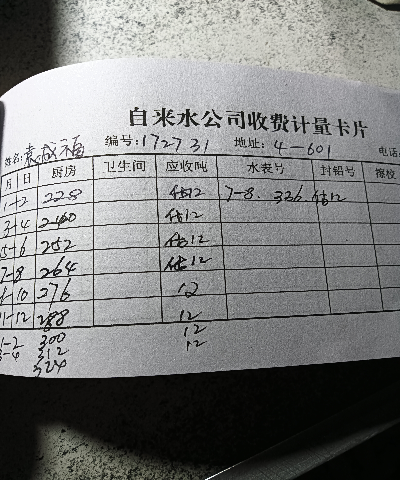 自来水公司收费计量卡片
姓名: 袁成福 编号: 172731 地址: 4-601 电话
月 日 厨房 卫生间 应收吨 水表号 封铅号 检校
1-2 228 估12 7-8. 336 估12
3-4 240 估12
5-6 252 估12
7-8 264 估12
9-10 276 12
11-12 288 12
1-2 300 12
3-4 312 12
324